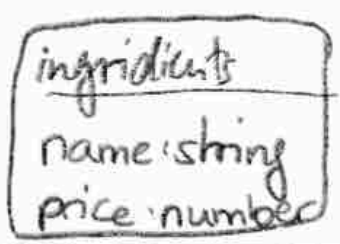 ingridients
name:string
price:number